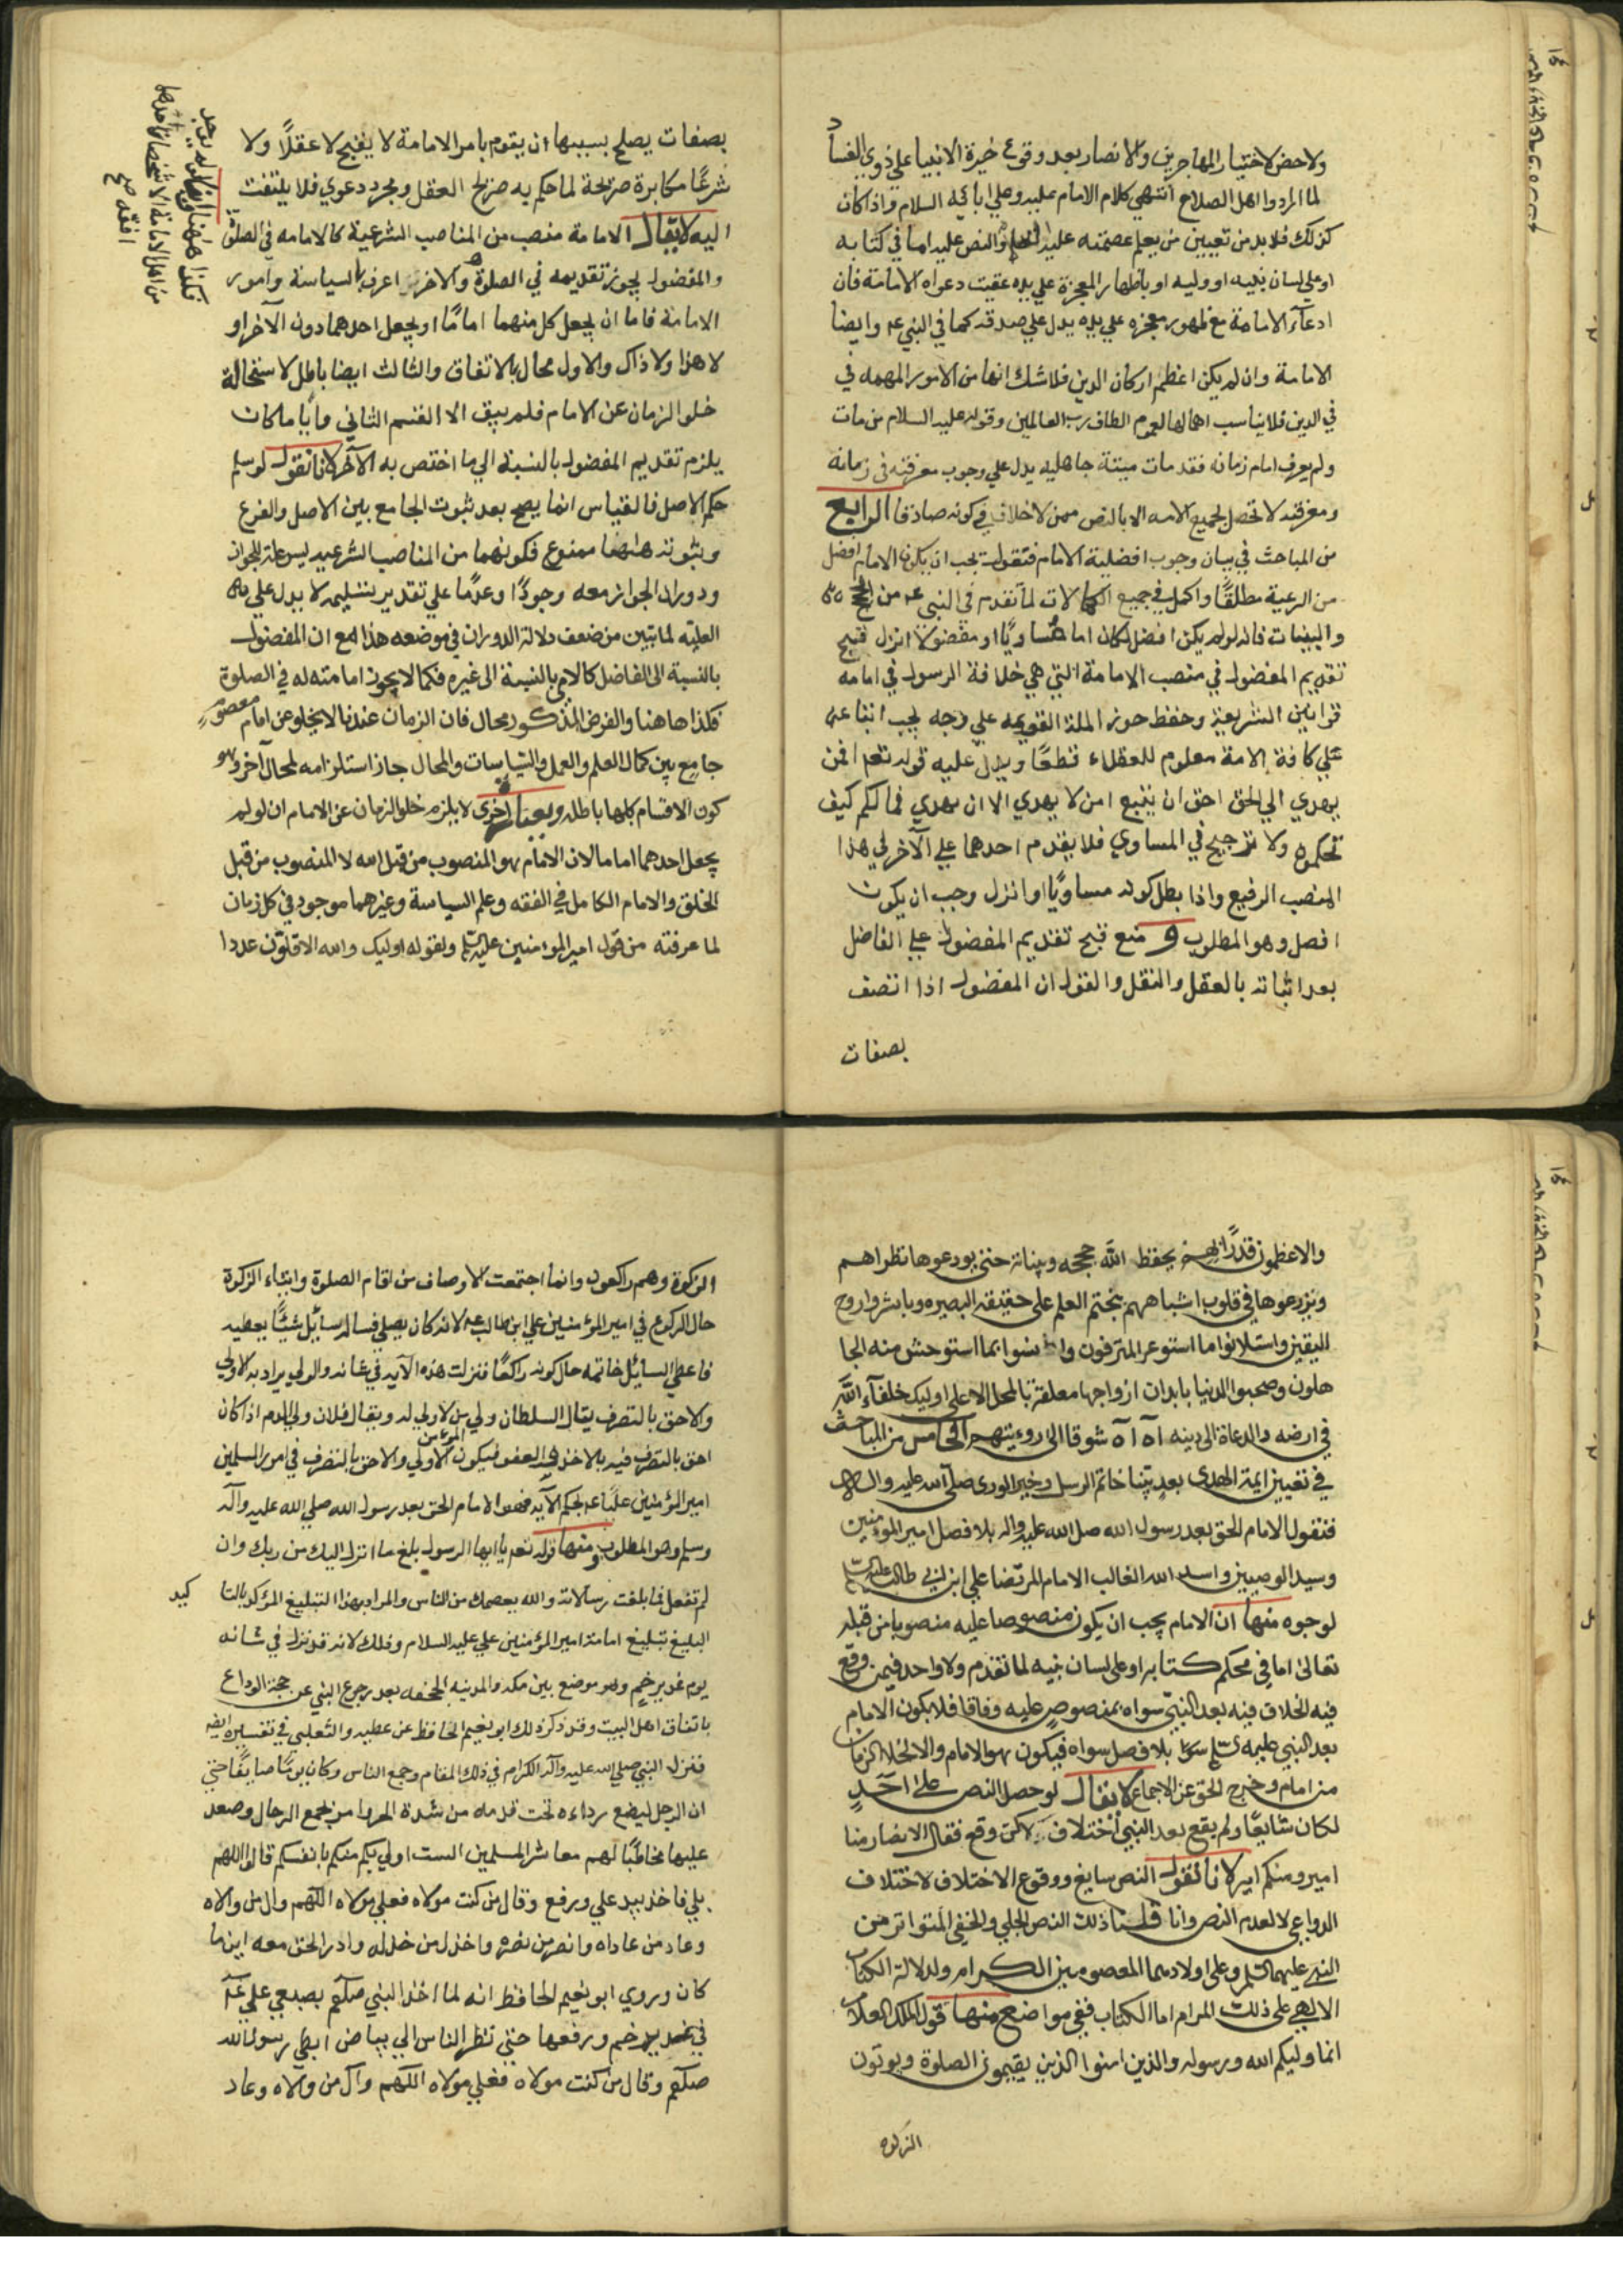 ولا حض لاختيار المهاجرين والانصار بعد وقوع خيرة الانبيا على ذوي الفساد
لما ارادوا اهل الصلاح انتهى كلام الامام عليه وعلى ابائه السلام واذا كان
كذلك فلا بد من تعيين من يعلم عصمته عليه والنص عليه اما في كتابه
او على لسان نبيه او وليه او باظهار المعجزة على يده عقيب دعواه الامامة فان
ادعآء الامامة مع ظهور معجزه على يده يدل على صدقه كما في النبي عم وايضا
الامامة وان لم يكن اعظم اركان الدين فلا شك انها من الامور المهمه في
في الدين فلا يناسب اهمالها لعموم الطاف رب العالمين وقوله عليه السلام من مات
ولم يعرف امام زمانه فقد مات ميتة جاهليه يدل على وجوب معرفته في زمانه
ومعرفته لا تحصل لجميع الامه الا بالنص ممن لا خلاف في كونه صادقا الرابع
من المباحث في بيان وجوب افضلية الامام فنقول يجب ان يكون الامام افضل
من الرعية مطلقًا واكمل في جميع الكمالات لما تقدم في النبي عم من الحجج
والبينات فانه لو لم يكن افضل لكان اما مساويًا او مفضولا انزل قبيح
تقديم المفضول في منصب الامامة التي هي خلافة الرسول في امامه
قوانين الشريعة وحفظ حوزه الملة القويمه على وجه يجب اتباعه
على كافة الامة معلوم للعقلاء قطعًا ويدل عليه قوله تعم افمن
يهدي الي الحق احق ان يتبع امن لا يهدي الا ان يهدي فما لكم كيف
تحكمون ولا ترجيح في المساوي فلا يقدم احدهما على الآخر في هذا
المنصب الرفيع واذا بطل كونه مساويًا او انزل وجب ان يكون
افصل وهو المطلوب و منع قبح تقديم المفضول على الفاضل
بعد اثباته بالعقل والنقل والقول ان المفضول اذا اتصف
بصفات
بصفات يصلح بسببها ان يقوم بامر الامامة لا يقبح لا عقلًا ولا
شرعًا مكابرة صريحة لما حكم به صريح العقل ومجرد دعوي فلا يلتفت
اليه لا يقال الامامة منصب من المناصب الشرعية كالامامه في الصلوة
والمفضول يجوز تقديمه في الصلوة والاخر اعرف بالسياسة وامور
الامامة فاما ان يجعل كل منهما امامًا او يجعل احدهما دون الآخر او
لا هذا ولا ذاك والاول محال بالاتفاق والثالث ايضا باطل لاستحالة
خلو الزمان عن الامام فلم يبق الا القسم الثاني وايا ما كان
يلزم تقديم المفضول بالنسبة الي ما اختص به الآخر لانا نقول لو سلم
حكم الاصل فالقياس انما يصح بعد ثبوت الجامع بين الاصل والفرع
وثبوته ههنا ممنوع فكونهما من المناصب الشرعيه ليس علة للجواز
ودوران الجواز معه وجودًا وعدمًا على تقدير تسليمه لا يدل على
العليه لما تبين من ضعف دلالة الدوران في موضعه هذا مع ان المفضول
بالنسبة الى الفاضل كالامي بالنسبة الى غيره فكما لا يجوز امامته له في الصلوة
فكذا هاهنا والفرض المذكور محال فان الزمان عندنا لا يخلو عن امام معصوم
جامع بين كمال العلم والعمل والسياسات والمحال جاز استلزامه لمحال آخر وهو
كون الاقسام كلها باطلة وبعبارة اخرى لا يلزم خلو الزمان عن الامام ان لو لم
يجعل احدهما اماما لان الامام هو المنصوب من قبل الله لا المنصوب من قبل
الخلق والامام الكامل في الفقه وعلم السياسة وغيرهما موجود في كل زمان
لما عرفته من قول امير المؤمنين عليه السلم ولقوله اوليك والله الاقلون عددا
والاعظمون قدرًا بهم يحفظ الله حججه وبيناته حتى يودعوها نظراهم
ويزرعوها في قلوب اشباههم هجم العلم على حقيقة البصيره وباشروا روح
اليقين واستلانوا ما استوعر المترفون وانسوا بما استوحش منه الجا
هلون وصحبوا الدنيا بابدان ارواحها معلقة بالمحل الاعلى اوليك خلفآء الله
في ارضه والدعاة الى دينه اه اه شوقا الى روءيتهم الخامس من المباحث
في تعيين ايمة الهدى بعد نبينا خاتم الرسل وخير الورى صلى الله عليه واله
فنقول الامام الحق بعد رسول الله صل الله عليه واله بلا فصل امير المؤمنين
وسيد الوصيين واسد الله الغالب الامام المرتضا علي ابن ابي طالب عليه السلم
لوجوه منها ان الامام يجب ان يكون منصوصا عليه منصوبا من قبله
تعالى اما في محكم كتابه او على لسان نبيه لما تقدم ولا واحد فيمن وقع
فيه الخلاف فيه بعد النبي سواه بمنصوص عليه وفاقا فلا يكون الامام
بعد النبي بلا فصل سواه فيكون هو الامام والا لخلا الزمان
من امام وخرج الحق عن الاجماع لا يقال لو حصل النص على احد
لكان شايعًا ولم يقع بعد النبي اختلاف لكن وقع فقال الانصار منا
امير ومنكم امير لانا نقول النص سايغ ووقوع الاختلاف لاختلاف
الدواعي لا لعدم النص وانا قلنا ذلك النص الجلي والخفي المتواتر من
النبي عليهما السلم وعلى اولادهما المعصومين الكرام ولدلالة الكتاب
الالهي على ذلك المرام اما الكتاب ففي مواضع منها قول الملك العلام
انما وليكم الله ورسوله والذين امنوا الذين يقيمون الصلوة ويوتون
الزكوه
الزكوة وهم راكعون وانما اجتمعت الاوصاف من اقام الصلوة وايتاء الزكوة
حال الركوع في امير المؤمنين علي ابن طالب عم لانه كان يصلي فساله سائل شيئًا يعطيه
فاعطى السايل خاتمه حال كونه راكعًا فنزلت هذه الآيه في شانه والولي يراد به الاولى
والاحق بالتصرف يقال السلطان ولي من لا ولي له ويقال فلان ولي الدم اذا كان
احق بالتصرف فيه بالاخذ والعفو فيكون الاولى والاحق بالتصرف في امور المسلمين
امير المؤمنين عليًا عم بحكم الآيه فهو الامام الحق بعد رسول الله صلي الله عليه وآله
وسلم وهو المطلوب ومنها قوله تعم يا ايها الرسول بلغ ما انزل اليك من ربك وان
لم تفعل فما بلغت رسالاته والله يعصمك من الناس والمراد بهذا التبليغ المؤكد بالتا كيد
البليغ تبليغ امامة امير المؤمنين علي عليه السلام وذلك لانه قد نزل في شانه
يوم غدير خم وهو موضع بين مكه والمدينه بالجحفه بعد رجوع النبي عن حجة الوداع
باتفاق اهل البيت وقد ذكر ذلك ابو نعيم الحافظ عن عطيه والثعلبي في تفسيره ايضا
فنزل النبي صلي الله عليه وآله الكرام في ذلك المقام وجمع الناس وكان يومًا صايفًا حتى
ان الرجل ليضع رداءه تحت قدمه من شدة الحر وامر بجمع الرحال وصعد
عليها مخاطبًا لهم معاشر المسلمين الست اولى بكم منكم بانفسكم قالوا اللهم
بلي فاخذ بيد علي ورفع وقال من كنت مولاه فعلي مولاه اللهم وال من والاه
وعاد من عاداه وانصر من نصره واخذل من خذله وادر الحق معه اينما
كان وروي ابو نعيم الحافظ انه لما اخذ النبي صلعم بضبعي علي عم
في غدير خم ورفعها حتى نظر الناس الي بياض ابطي رسول الله
صلعم وقال من كنت مولاه فعلي مولاه اللهم وال من والاه وعاد